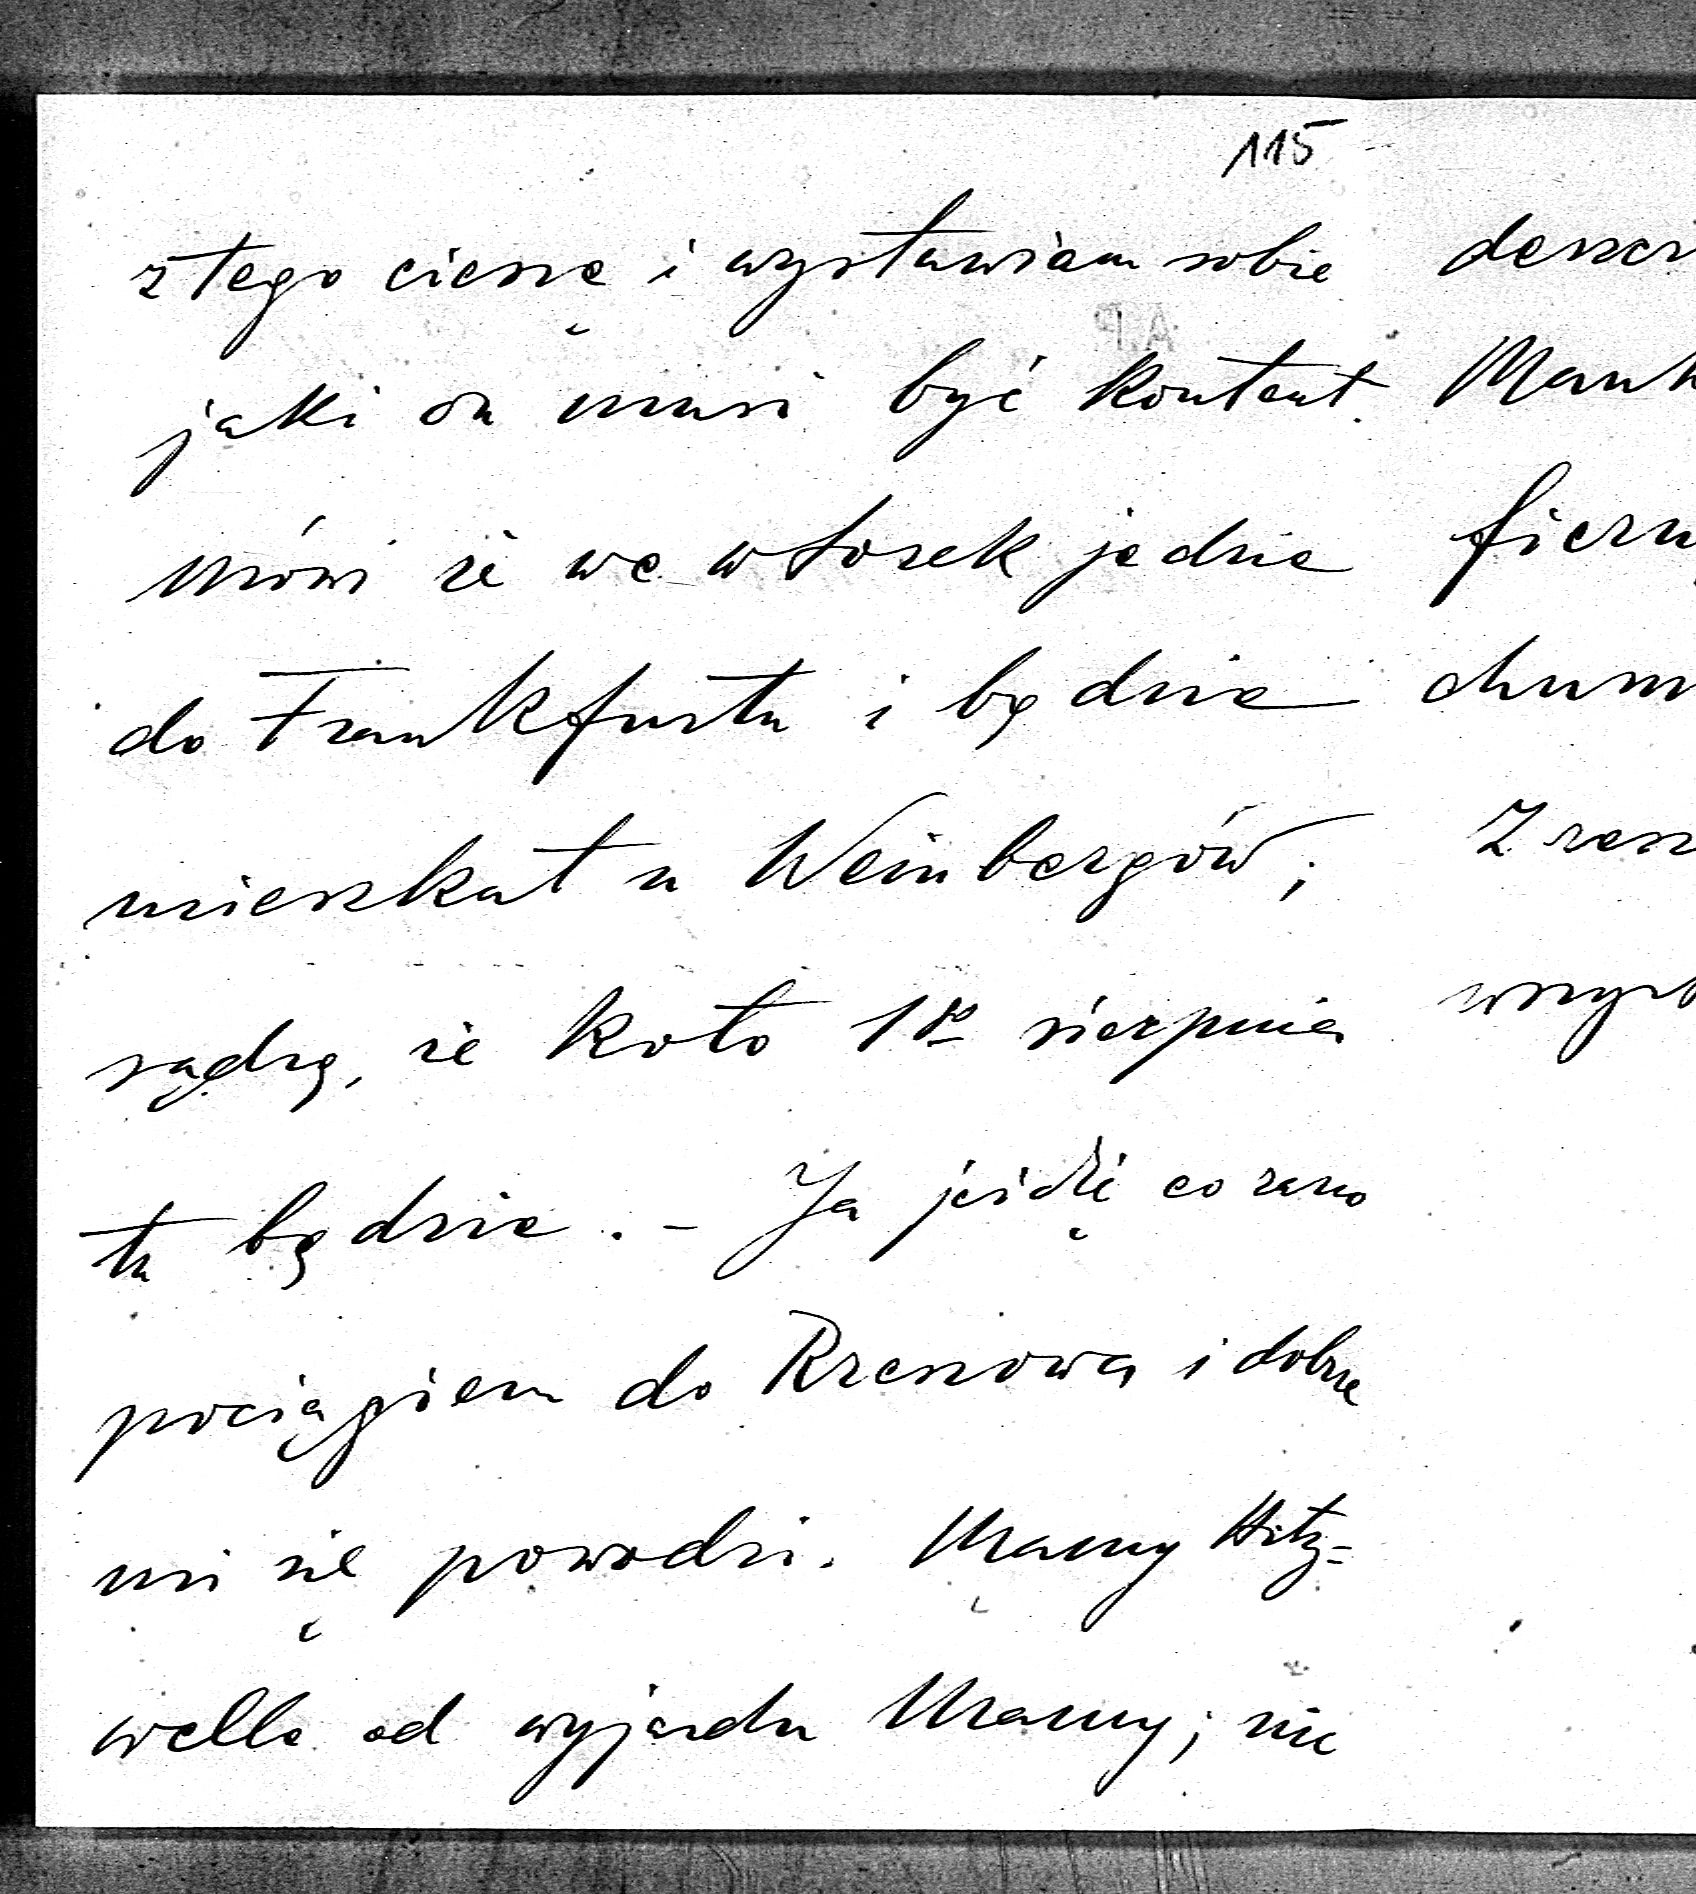 115
z tego cieszę i wystawiam sobie
jaki on musi być kontent.
mówi że we wtorek jedzie
do Frankfurtu i będzie
mieszkał u Weinbergów;
sądzę, że koło 1go sierpnia
tu będzie. - Ja jeżdżę co rano
pociągiem do Rzeszowa i dobrze
mi się powodzi. Mamy Hitz=
welle od wyjazdu Mamy; nie
deszcz
Mank
chum
Zresz
wszyst